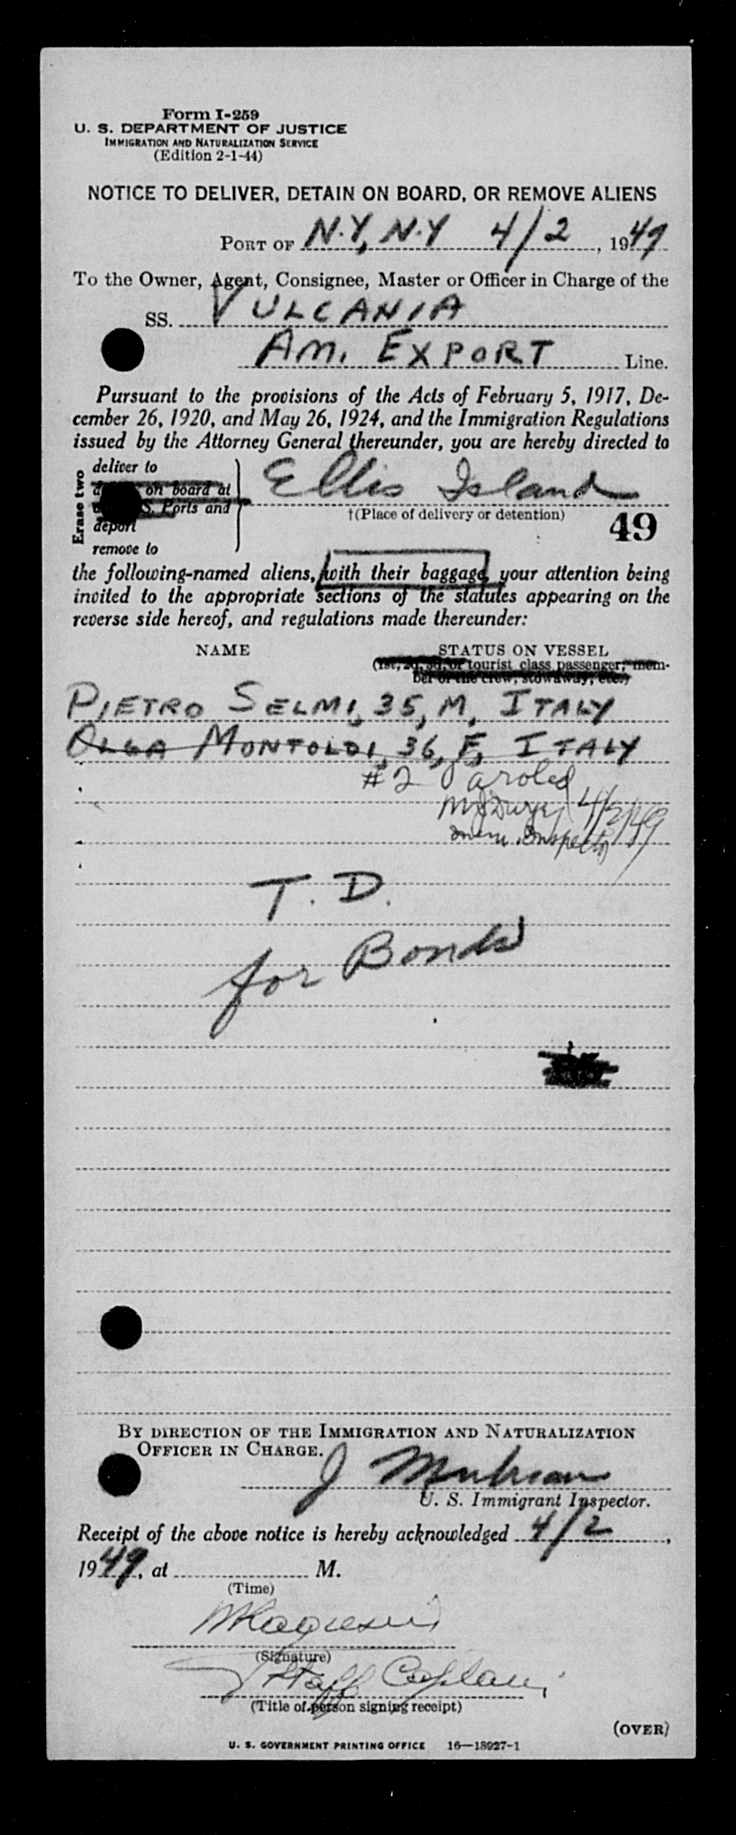 Form I-259
U. S. DEPARTMENT OF JUSTICE
IMMIGRATION AND NATURALIZATION SERVICE
(Edition 2-1-44)
NOTICE TO DELIVER, DETAIN ON BOARD, OR REMOVE ALIENS
PORT OF N.Y, N.Y 4/2, 1949
To the Owner, Agent, Consignee, Master or Officer in Charge of the
SS. VULCANIA
AM. EXPORT Line.
Pursuant to the provisions of the Acts of February 5, 1917, De-
cember 26, 1920, and May 26, 1924, and the Immigration Regulations
issued by the Attorney General thereunder, you are hereby directed to
Erase two
deliver to
on board at
S. Ports and
deport
remove to
Ellis Island
†(Place of delivery or detention)
49
the following-named aliens, with their baggage, your attention being
invited to the appropriate sections of the statutes appearing on the
reverse side hereof, and regulations made thereunder:
NAME STATUS ON VESSEL
(1st, 2d, 3d, or tourist class passenger, mem-
ber of the crew, stowaway, etc.)
PIETRO SELMI, 35, M, ITALY
OLGA MONTOLDI, 36, F, ITALY
#2 Paroled
4/2/49
Imm. Inspector
T. D.
for Bonds
BY DIRECTION OF THE IMMIGRATION AND NATURALIZATION
OFFICER IN CHARGE.
J
U. S. Immigrant Inspector.
Receipt of the above notice is hereby acknowledged 4/2,
1949, at M.
(Time)
(Signature)
Staff Captain
(Title of person signing receipt)
(OVER)
U. S. GOVERNMENT PRINTING OFFICE 16—18927-1